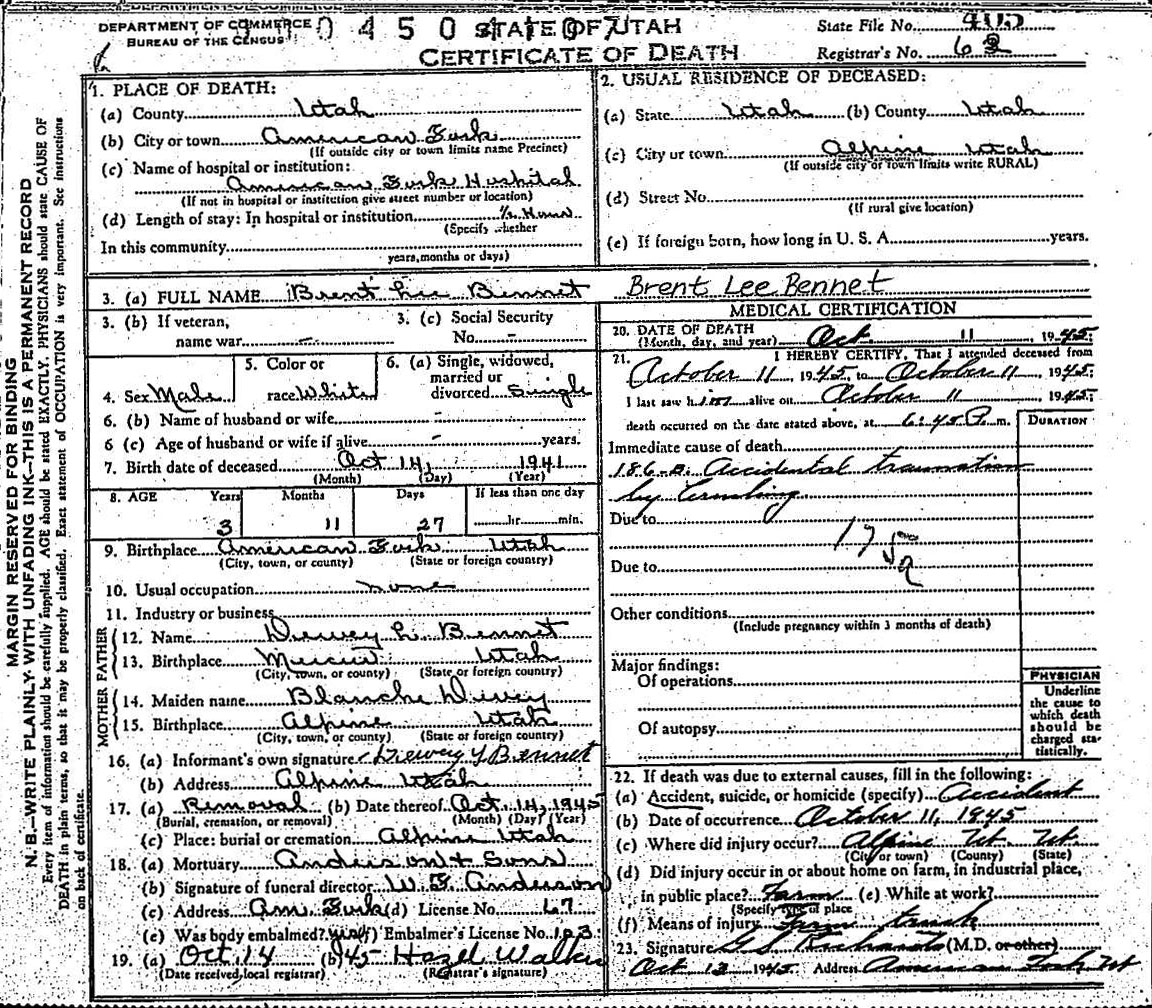 DEPARTMENT OF COMMERCE
BUREAU OF THE CENSUS
0 4 5 0
STATE OF UTAH
CERTIFICATE OF DEATH
State File No. 405
Registrar's No. 63
MARGIN RESERVED FOR BINDING
N. B.—WRITE PLAINLY WITH UNFADING INK—THIS IS A PERMANENT RECORD
Every item of information should be carefully supplied. AGE should be stated EXACTLY. PHYSICIANS should state CAUSE OF
DEATH in plain terms, so that it may be properly classified. Exact statement of OCCUPATION is very important. See instructions
on back of certificate.
1. PLACE OF DEATH:
(a) County Utah
(b) City or town American Fork
(If outside city or town limits name Precinct)
(c) Name of hospital or institution:
American Fork Hospital
(If not in hospital or institution give street number or location)
(d) Length of stay: In hospital or institution ½ Hour
(Specify whether
In this community
years, months or days)
2. USUAL RESIDENCE OF DECEASED:
(a) State Utah (b) County Utah
(c) City or town Alpine Utah
(If outside city or town limits write RURAL)
(d) Street No.
(If rural give location)
(e) If foreign born, how long in U. S. A. years.
3. (a) FULL NAME Brent Lee Bennet Brent Lee Bennet
3. (b) If veteran,
name war –
3. (c) Social Security
No. –
4. Sex Male
5. Color or
race White
6. (a) Single, widowed,
married or
divorced Single
6. (b) Name of husband or wife –
6 (c) Age of husband or wife if alive – years.
7. Birth date of deceased Oct 14, 1941
(Month) (Day) (Year)
8. AGE Years Months Days If less than one day
3 11 27 hr. min.
9. Birthplace American Fork Utah
(City, town, or county) (State or foreign country)
10. Usual occupation none
11. Industry or business
FATHER
12. Name Dewey L. Bennet
13. Birthplace Mercur Utah
(City, town, or county) (State or foreign country)
MOTHER
14. Maiden name Blanche Devey
15. Birthplace Alpine Utah
(City, town, or county) (State or foreign country)
16. (a) Informant's own signature Dewey L Bennet
(b) Address Alpine Utah
17. (a) Removal (b) Date thereof Oct. 14, 1945
(Burial, cremation, or removal) (Month) (Day) (Year)
(c) Place: burial or cremation Alpine Utah
18. (a) Mortuary Anderson & Sons
(b) Signature of funeral director W. F. Anderson
(c) Address Am. Fork (d) License No. 67
(e) Was body embalmed? yes (f) Embalmer's License No. 103
19. (a) Oct 14 (b) 45- Hazel Walker
(Date received, local registrar) (Registrar's signature)
MEDICAL CERTIFICATION
20. DATE OF DEATH
(Month, day, and year) Oct. 11, 1945
21. I HEREBY CERTIFY, That I attended deceased from
October 11, 1945, to October 11, 1945;
I last saw him alive on October 11, 1945;
death occurred on the date stated above, at 6:45 P. m.
DURATION
Immediate cause of death
186-a. Accidental traumation
by Crushing
Due to
175a
Due to
Other conditions
(Include pregnancy within 3 months of death)
Major findings:
Of operations
Of autopsy
PHYSICIAN
Underline
the cause to
which death
should be
charged sta-
tistically.
22. If death was due to external causes, fill in the following:
(a) Accident, suicide, or homicide (specify) Accident
(b) Date of occurrence October 11, 1945
(c) Where did injury occur? Alpine Ut. Ut.
(City or town) (County) (State)
(d) Did injury occur in or about home on farm, in industrial place,
in public place? Farm (e) While at work?
(Specify type of place
(f) Means of injury Farm truck
23. Signature G S Richards (M.D. or other)
Oct 12 1945 Address American Fork Ut